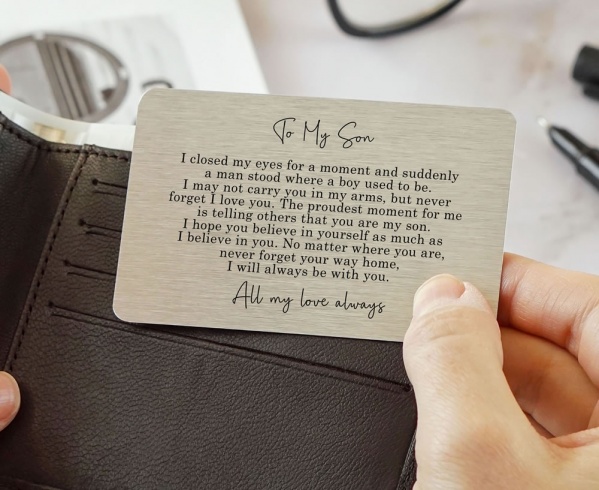 To My Son
I closed my eyes for a moment and suddenly
a man stood where a boy used to be.
I may not carry you in my arms, but never
forget I love you. The proudest moment for me
is telling others that you are my son.
I hope you believe in yourself as much as
I believe in you. No matter where you are,
never forget your way home,
I will always be with you.
All my love always